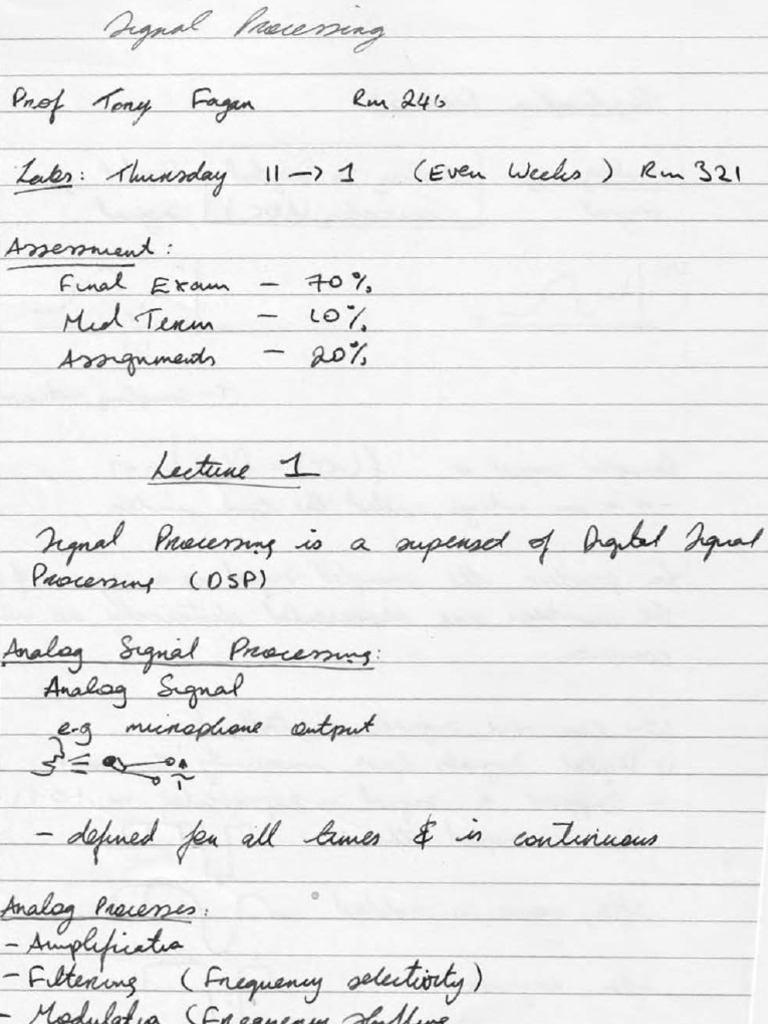 Signal Processing
Prof Tony Fagan Rm 246
Labs: Thursday 11 → 1 (Even Weeks) Rm 321
Assessment:
Final Exam - 70%
Mid Term - 10%
Assignments - 20%
Lecture 1
Signal Processing is a superset of Digital Signal
Processing (DSP)
Analog Signal Processing:
Analog Signal
e.g microphone output
- defined for all times & is continuous
Analog Processes:
- Amplificatio
- Filtering (Frequency selectivity)
- Modulatio (Frequency shifting